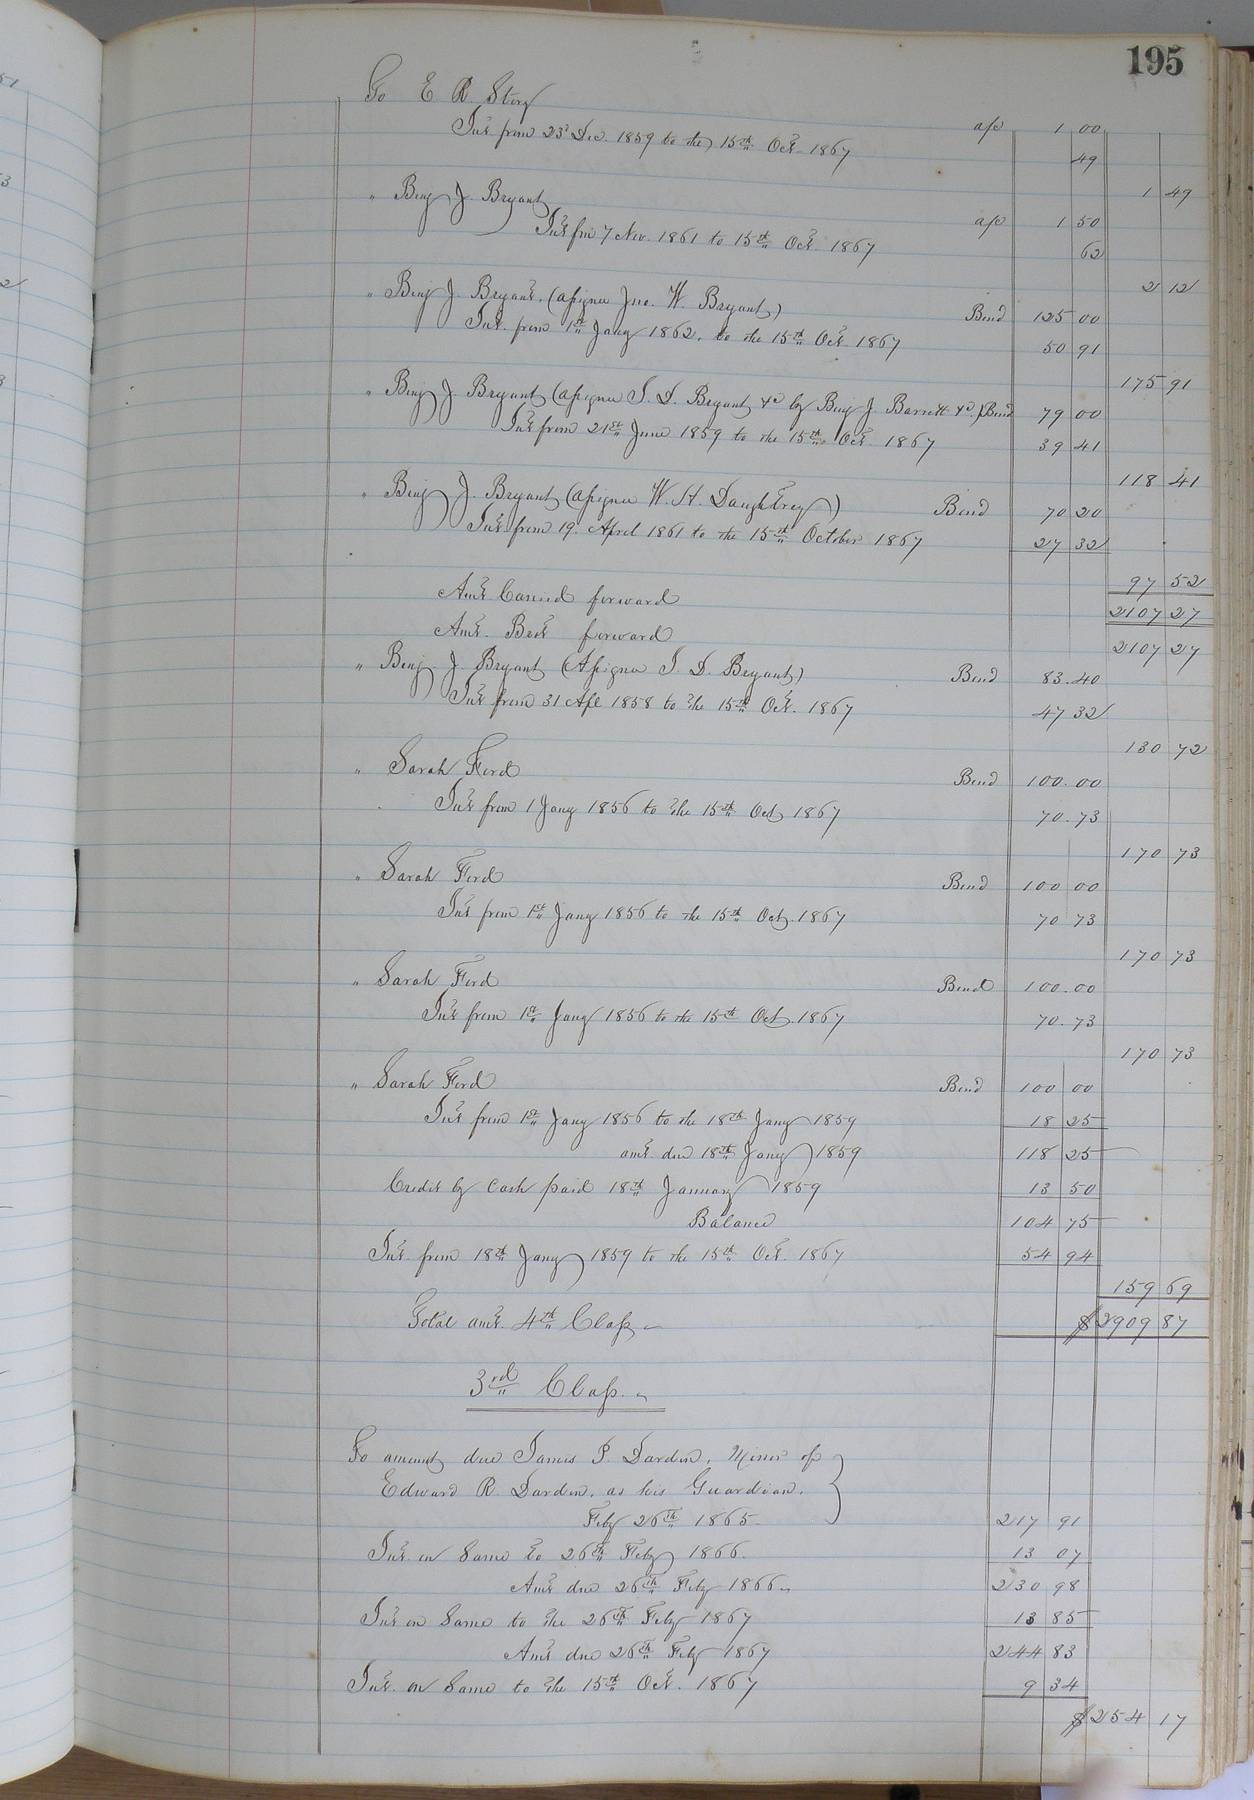 195
To E R Story a/c 1 00
Int from 23d Dec. 1859 to the 15th Oct. 1867 49
1 49
" Benj J. Bryant a/c 1 50
Int fm 7 Nov. 1861 to 15th Oct. 1867 62
2 12
" Benj J. Bryant. (assignee Jno. W. Bryant) Bond 125 00
Int. from 1st Jany 1862. to the 15th Oct. 1867 50 91
175 91
" Benj J. Bryant (assignee J. D. Bryant &c by Benj J. Barrett &c.) Bond 79 00
Int from 21st June 1859 to the 15th Oct. 1867 39 41
118 41
" Benj J. Bryant (assignee W. H. Daughtrey) Bond 70 20
Int. from 19. April 1861 to the 15th October 1867 27 32
97 52
Amt Carried forward 2107 27
Amt. Brot forward 2107 27
" Benj. J. Bryant (Assignee J. D. Bryant) Bond 83.40
Int from 31 Apl 1858 to the 15th Oct. 1867 47 32
130 72
" Sarah Ford Bond 100.00
Int from 1 Jany 1856 to the 15th Oct 1867 70.73
170 73
" Sarah Ford Bond 100 00
Int from 1st Jany 1856 to the 15th Oct. 1867 70 73
170 73
" Sarah Ford Bond 100.00
Int from 1st Jany 1856 to the 15th Oct. 1867 70.73
170 73
" Sarah Ford Bond 100 00
Int from 1st Jany 1856 to the 18th Jany 1859 18 25
amt. due 18th Jany 1859 118 25
Credit by Cash paid 18th January 1859 13 50
Balance 104 75
Int. from 18th Jany 1859 to the 15th Oct. 1867 54 94
159 69
Total amt. 4th Class $2909 87
3rd Class.
To amount due James P. Darden, Minor of
Edward R. Darden, as his Guardian.
Feby 26th 1865 217 91
Int. on Same to 26th Feby 1866. 13 07
Amt due 26th Feby 1866 230 98
Int on Same to the 26th Feby 1867 13 85
Amt due 26th Feby 1867 244 83
Int. on Same to the 15th Oct. 1867 9 34
$254 17